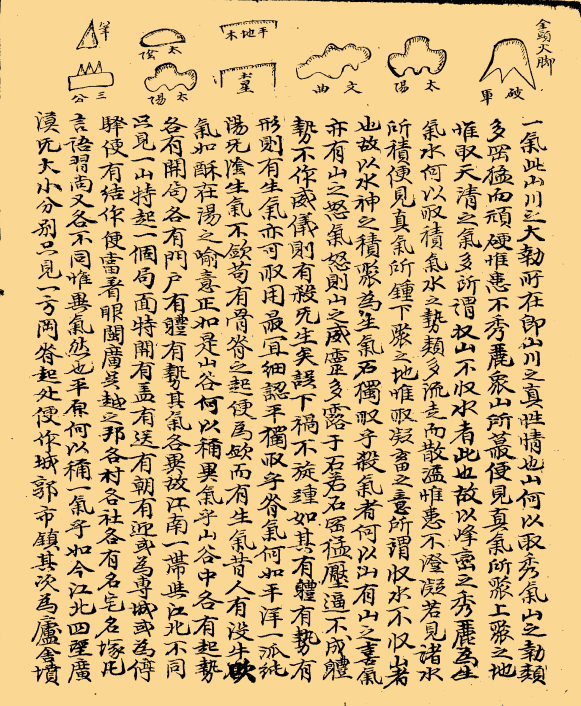 金頭火脚
破軍
太陽
文曲
平地木
土星
太陰
太陽
筆
三公
一氣此山川之大勢所在即山川之真性情也山何以取秀氣山之勢類
多雷猛而頑硬惟患不秀麗衆山所蕞便見真氣所聚上聚之地
惟取天清之氣多所謂収山不収水者此也故以峰巒之秀麗為生
氣水何以取積氣水之勢類多流走而散濫惟患不澄凝若見諸水
所積便見真氣所鍾下聚之地惟取凝畜之意所謂収水不収山者
也故以水神之積聚為生氣石獨取乎殺氣者何以山有山之喜氣
亦有山之怒氣怒則山之威靈多露于石若石雷猛壓逼不成體
勢不作威儀則有殺死生矣誤下禍不旋踵如其有體有勢有
形則有生氣亦可取用最宜細認平獨取乎脊氣何如平洋一派純
陽旡陰生氣不歛苟有骨脊之起便為歛而有生氣昔人有没牛歕
氣如酥在湯之喻意正如是山谷何以稱異氣乎山谷中各有起勢
各有開局各有門户有體有勢其氣各異故江南一帶與江北不同
只見一山特起一個局面特開有盖有送有朝有迎或為專城或為停
驛便有結作便當着眼閩廣吳越之邦各村各社各有名宅名塚凡
言語習尚又各不同惟異氣然也平原何以稱一氣乎如今江北四望廣
漠旡大小分别只見一方岡脊起处便作城郭市鎮其次為廬舍墳